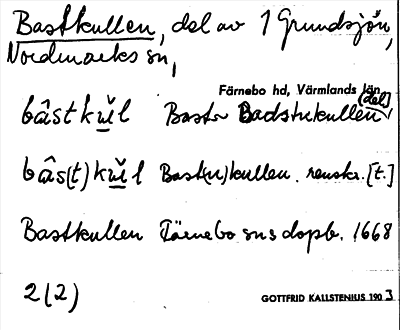 Bastkullen, del av 1 Grundsjön,
Nordmarks sn,
Färnebo hd, Värmlands län
(del)
båstkŭl Bast- Badstukullen
bås(t)kŭl Bast(u)kullen. renskr. [t.]
Bastkullen Färnebo sns dopb. 1668
2(2)
GOTTFRID KALLSTENIUS 1903